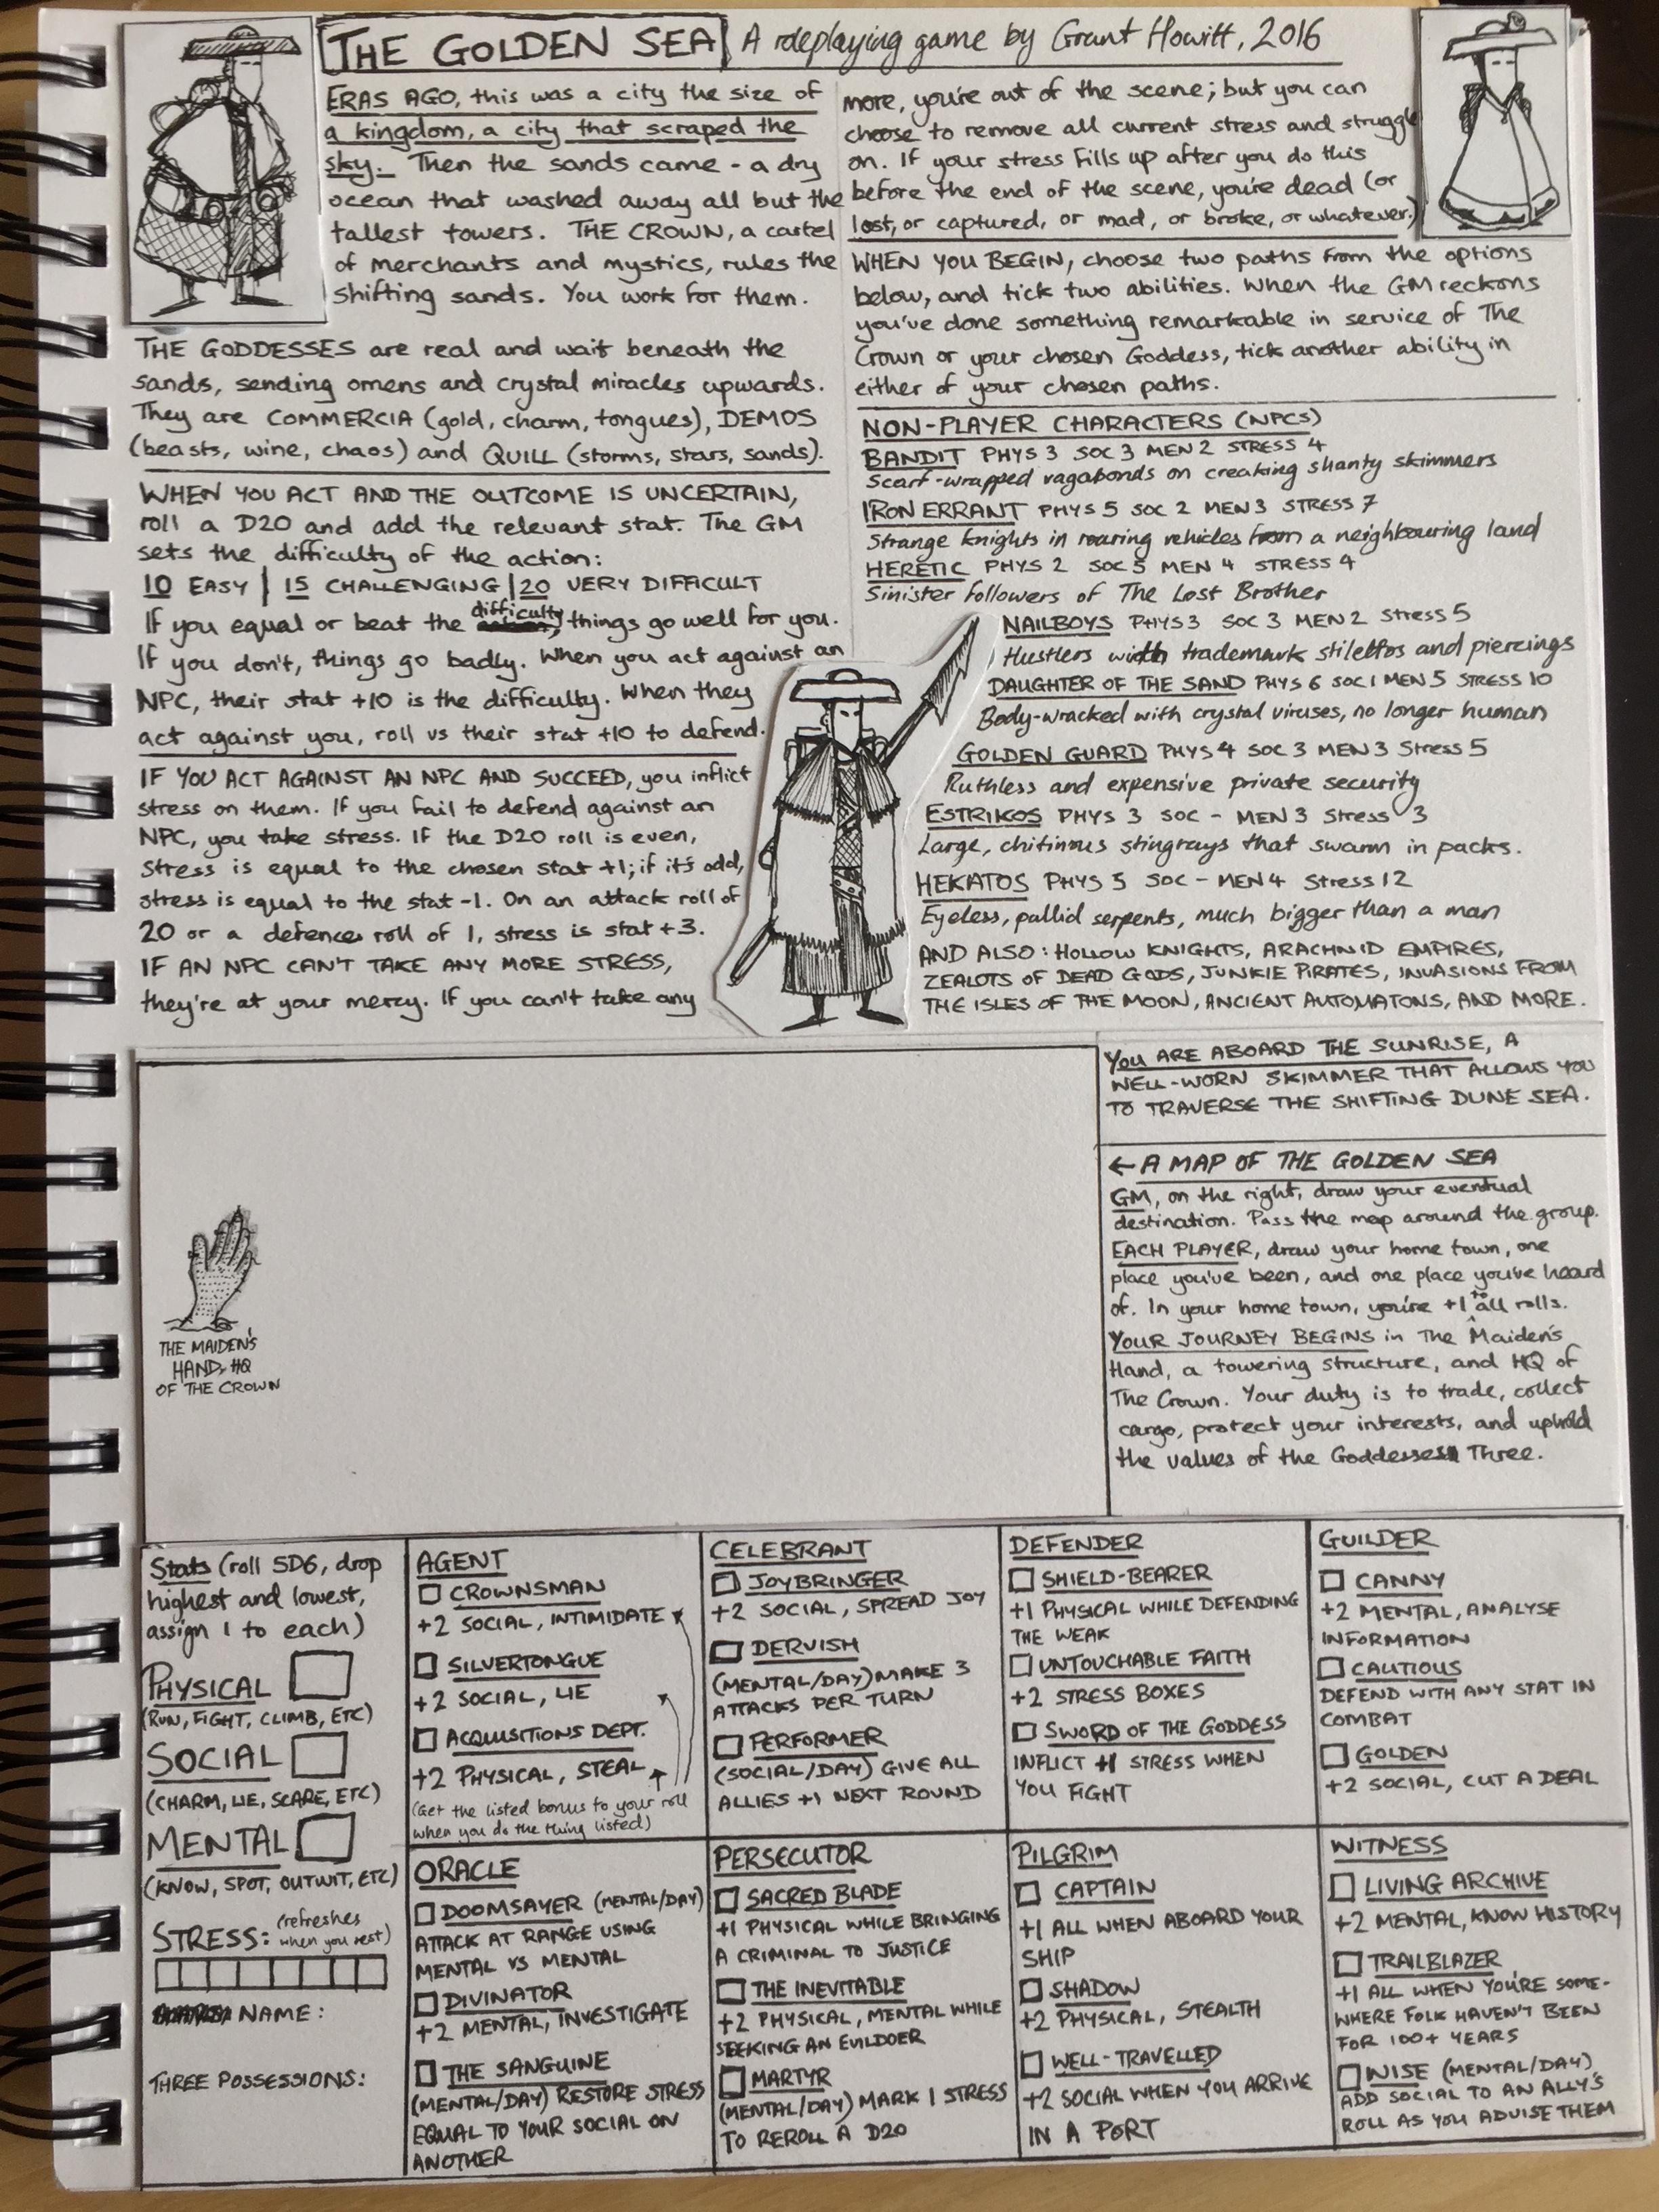 THE GOLDEN SEA A roleplaying game by Grant Howitt, 2016
ERAS AGO, this was a city the size of
a kingdom, a city that scraped the
sky. Then the sands came - a dry
ocean that washed away all but the
tallest towers. THE CROWN, a cartel
of merchants and mystics, rules the
shifting sands. You work for them.
THE GODDESSES are real and wait beneath the
sands, sending omens and crystal miracles upwards.
They are COMMERCIA (gold, charm, tongues), DEMOS
(beasts, wine, chaos) and QUILL (storms, stars, sands).
WHEN YOU ACT AND THE OUTCOME IS UNCERTAIN,
roll a D20 and add the relevant stat. The GM
sets the difficulty of the action:
10 EASY | 15 CHALLENGING | 20 VERY DIFFICULT
If you equal or beat the difficulty, things go well for you.
If you don't, things go badly. When you act against an
NPC, their stat +10 is the difficulty. When they
act against you, roll vs their stat +10 to defend.
IF YOU ACT AGAINST AN NPC AND SUCCEED, you inflict
stress on them. If you fail to defend against an
NPC, you take stress. If the D20 roll is even,
stress is equal to the chosen stat +1; if it's odd,
stress is equal to the stat -1. On an attack roll of
20 or a defence roll of 1, stress is stat +3.
IF AN NPC CAN'T TAKE ANY MORE STRESS,
they're at your mercy. If you can't take any
more, you're out of the scene; but you can
choose to remove all current stress and struggle
on. If your stress fills up after you do this
before the end of the scene, you're dead (or
lost, or captured, or mad, or broke, or whatever.)
WHEN YOU BEGIN, choose two paths from the options
below, and tick two abilities. When the GM reckons
you've done something remarkable in service of The
Crown or your chosen Goddess, tick another ability in
either of your chosen paths.
NON-PLAYER CHARACTERS (NPCs)
BANDIT PHYS 3 SOC 3 MEN 2 STRESS 4
Scarf-wrapped vagabonds on creaking shanty skimmers
IRON ERRANT PHYS 5 SOC 2 MEN 3 STRESS 7
Strange knights in roaring vehicles from a neighbouring land
HERETIC PHYS 2 SOC 5 MEN 4 STRESS 4
Sinister followers of The Lost Brother
NAILBOYS PHYS 3 SOC 3 MEN 2 Stress 5
Hustlers with trademark stilettos and piercings
DAUGHTER OF THE SAND PHYS 6 SOC 1 MEN 5 STRESS 10
Body-wracked with crystal viruses, no longer human
GOLDEN GUARD PHYS 4 SOC 3 MEN 3 Stress 5
Ruthless and expensive private security
ESTRIKOS PHYS 3 SOC - MEN 3 Stress 3
Large, chitinous stingrays that swarm in packs.
HEKATOS PHYS 5 SOC - MEN 4 Stress 12
Eyeless, pallid serpents, much bigger than a man
AND ALSO: HOLLOW KNIGHTS, ARACHNID EMPIRES,
ZEALOTS OF DEAD GODS, JUNKIE PIRATES, INVASIONS FROM
THE ISLES OF THE MOON, ANCIENT AUTOMATONS, AND MORE.
YOU ARE ABOARD THE SUNRISE, A
WELL-WORN SKIMMER THAT ALLOWS YOU
TO TRAVERSE THE SHIFTING DUNE SEA.
← A MAP OF THE GOLDEN SEA
GM, on the right, draw your eventual
destination. Pass the map around the group.
EACH PLAYER, draw your home town, one
place you've been, and one place you've heard
of. In your home town, you're +1 to all rolls.
YOUR JOURNEY BEGINS in The Maiden's
Hand, a towering structure, and HQ of
The Crown. Your duty is to trade, collect
cargo, protect your interests, and uphold
the values of the Goddesses Three.
THE MAIDEN'S
HAND, HQ
OF THE CROWN
Stats (roll 5D6, drop
highest and lowest,
assign 1 to each)
PHYSICAL
(RUN, FIGHT, CLIMB, ETC)
SOCIAL
(CHARM, LIE, SCARE, ETC)
MENTAL
(KNOW, SPOT, OUTWIT, ETC)
STRESS: (refreshes
when you rest)
NAME:
THREE POSSESSIONS:
AGENT
CROWNSMAN
+2 SOCIAL, INTIMIDATE
SILVERTONGUE
+2 SOCIAL, LIE
ACQUISITIONS DEPT.
+2 PHYSICAL, STEAL
(Get the listed bonus to your roll
when you do the thing listed)
CELEBRANT
JOYBRINGER
+2 SOCIAL, SPREAD JOY
DERVISH
(MENTAL/DAY) MAKE 3
ATTACKS PER TURN
PERFORMER
(SOCIAL/DAY) GIVE ALL
ALLIES +1 NEXT ROUND
DEFENDER
SHIELD-BEARER
+1 PHYSICAL WHILE DEFENDING
THE WEAK
UNTOUCHABLE FAITH
+2 STRESS BOXES
SWORD OF THE GODDESS
INFLICT +1 STRESS WHEN
YOU FIGHT
GUILDER
CANNY
+2 MENTAL, ANALYSE
INFORMATION
CAUTIOUS
DEFEND WITH ANY STAT IN
COMBAT
GOLDEN
+2 SOCIAL, CUT A DEAL
ORACLE
DOOMSAYER (MENTAL/DAY)
ATTACK AT RANGE USING
MENTAL VS MENTAL
DIVINATOR
+2 MENTAL, INVESTIGATE
THE SANGUINE
(MENTAL/DAY) RESTORE STRESS
EQUAL TO YOUR SOCIAL ON
ANOTHER
PERSECUTOR
SACRED BLADE
+1 PHYSICAL WHILE BRINGING
A CRIMINAL TO JUSTICE
THE INEVITABLE
+2 PHYSICAL, MENTAL WHILE
SEEKING AN EVILDOER
MARTYR
(MENTAL/DAY) MARK 1 STRESS
TO REROLL A D20
PILGRIM
CAPTAIN
+1 ALL WHEN ABOARD YOUR
SHIP
SHADOW
+2 PHYSICAL, STEALTH
WELL-TRAVELLED
+2 SOCIAL WHEN YOU ARRIVE
IN A PORT
WITNESS
LIVING ARCHIVE
+2 MENTAL, KNOW HISTORY
TRAILBLAZER
+1 ALL WHEN YOU'RE SOME-
WHERE FOLK HAVEN'T BEEN
FOR 100+ YEARS
WISE (MENTAL/DAY)
ADD SOCIAL TO AN ALLY'S
ROLL AS YOU ADVISE THEM